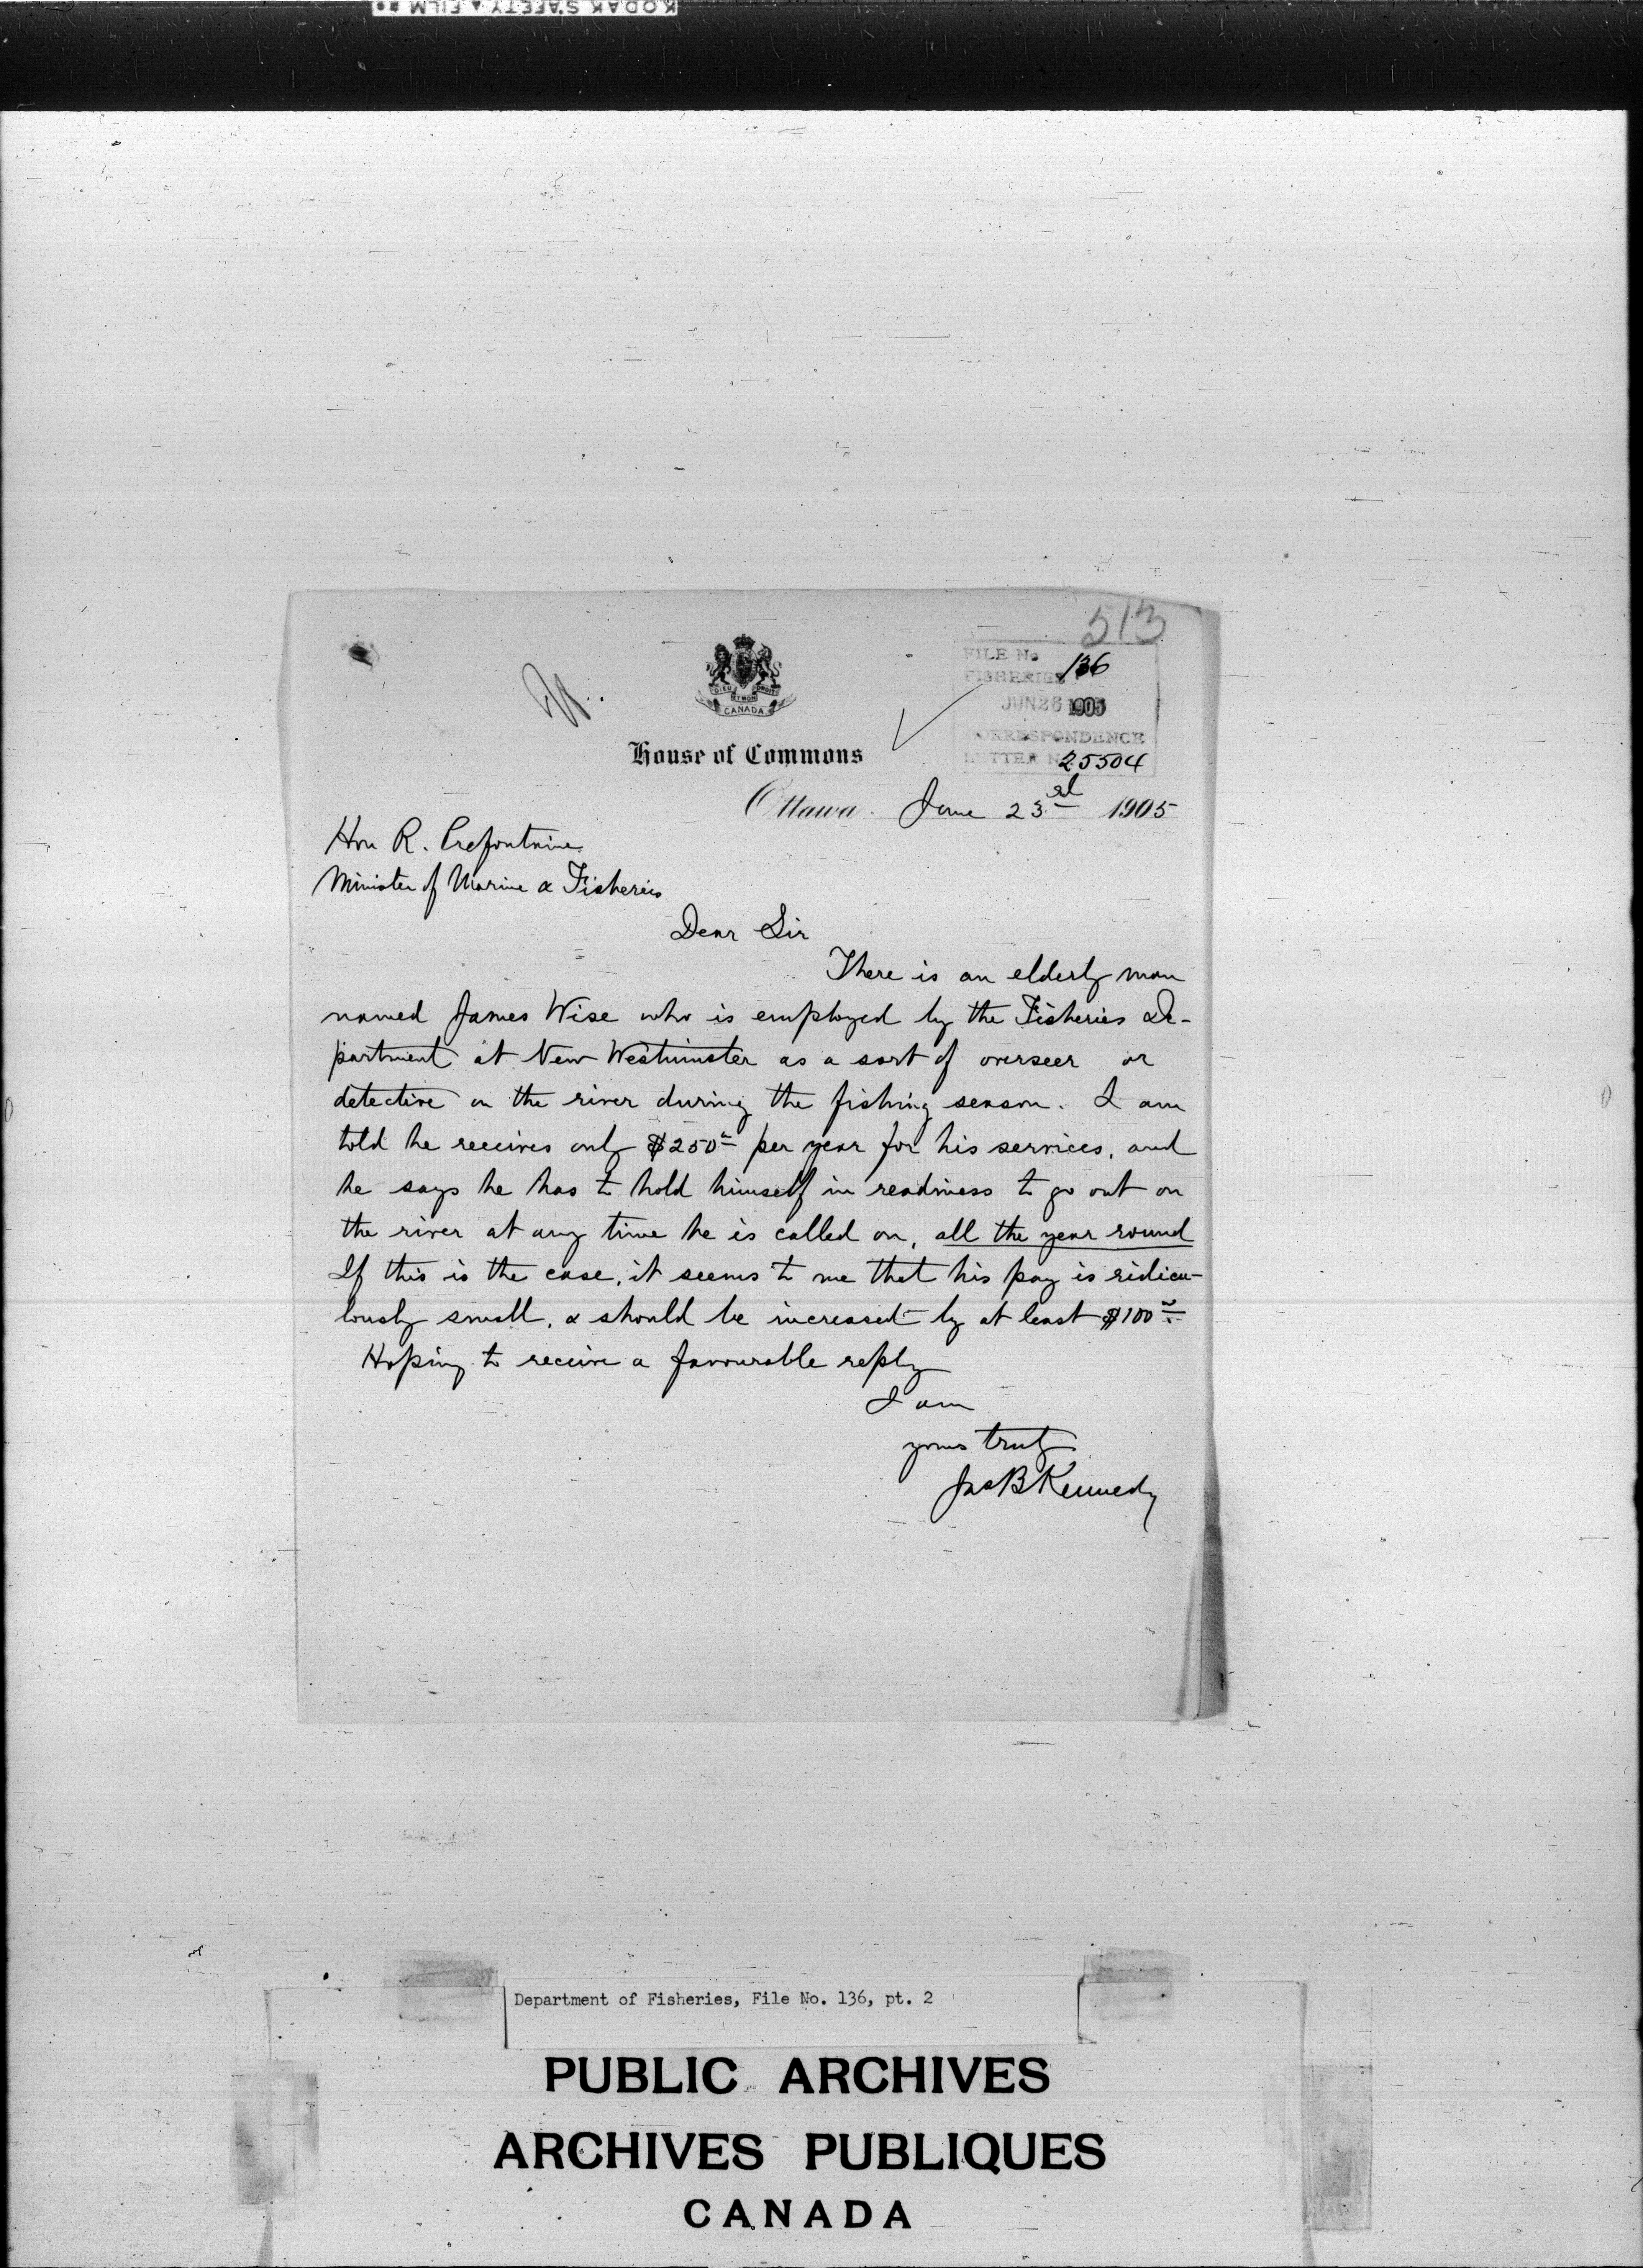 KODAK SAFETY FILM
513
FILE No 136
FISHERIES
JUN 26 1905
CORRESPONDENCE
LETTER No 25504
DIEU ET MON DROIT
CANADA
House of Commons
Ottawa June 23rd 1905
Hon R. Prefontaine
Minister of Marine & Fisheries
Dear Sir
There is an elderly man
named James Wise who is employed by the Fisheries De-
partment at New Westminster as a sort of overseer or
detective on the river during the fishing season. I am
told he receives only $250 per year for his services, and
he says he has to hold himself in readiness to go out on
the river at any time he is called on, all the year round
If this is the case, it seems to me that his pay is ridicu-
lously small, & should be increased by at least $100
Hoping to receive a favourable reply
I am
yours truly
Jas B Kennedy
Department of Fisheries, File No. 136, pt. 2
PUBLIC ARCHIVES
ARCHIVES PUBLIQUES
CANADA